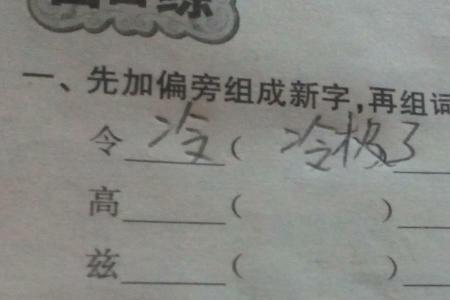 一、先加偏旁组成新字,再组词
令 冷 ( 冷极了
高 ( )
兹 ( )